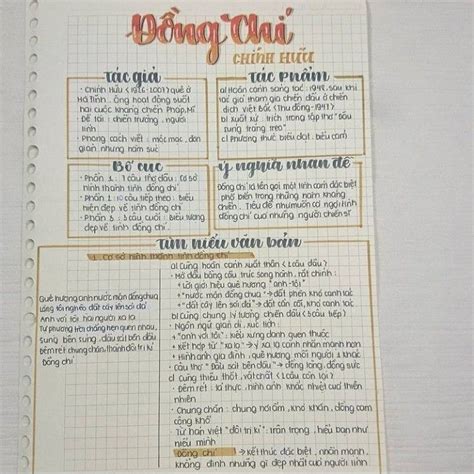 Đồng Chí
CHÍNH HỮU
Tác giả
· Chính Hữu (1926-2007) quê ở
Hà Tĩnh. Ông hoạt động suốt
hai cuộc kháng chiến Pháp, Mĩ
· Đề tài: chiến trường, người
lính
· Phong cách viết: mộc mạc, đơn
giản nhưng hàm súc
Tác phẩm
a) Hoàn cảnh sáng tác: 1948, sau khi
tác giả tham gia chiến đấu ở chiến
dịch Việt Bắc (Thu đông-1947)
b) Xuất xứ: trích trong tập thơ "Đầu
súng trăng treo"
c) Phương thức biểu đạt: biểu cảm
Bố cục
· Phần 1: 7 câu thơ đầu: cơ sở
hình thành tình đồng chí
· Phần 2: 10 câu tiếp theo: biểu
hiện đẹp về tình đồng chí
· Phần 3: 3 câu cuối: biểu tượng
đẹp về tình đồng chí.
Ý nghĩa nhan đề
Đồng chí là tên gọi một tình cảm đặc biệt
phổ biến trong những năm kháng
chiến. Tiêu đề như muốn ca ngợi tình
đồng chí của những người chiến sĩ
Tìm hiểu văn bản
1. Cơ sở hình thành tình đồng chí
Quê hương anh nước mặn đồng chua
Làng tôi nghèo đất cày lên sỏi đá
Anh với tôi hai người xa lạ
Tự phương trời chẳng hẹn quen nhau,
Súng bên súng, đầu sát bên đầu
Đêm rét chung chăn thành đôi tri kỉ
Đồng chí
a) Cùng hoàn cảnh xuất thân (2 câu đầu)
· Mở đầu bằng cấu trúc song hành, rất chỉnh:
+ Lời giới thiệu quê hương "anh-tôi"
+ "nước mặn đồng chua" → đất phèn khó canh tác
+ "đất cày lên sỏi đá" → đất cằn cỗi, khó canh tác
b) Cùng chung lý tưởng chiến đấu (3 câu tiếp)
· Ngôn ngữ giản dị, xúc tích:
+ "anh với tôi": kiểu xưng danh quen thuộc
+ Kết hợp từ "xa lạ" → ý xa lạ càng nhấn mạnh hơn
+ Hình ảnh gia đình, quê hương mỗi người 1 khác
· Câu thơ "Đầu sát bên đầu" → đồng lòng, đồng sức
c) Cùng thiếu thốn, vật chất (2 câu còn lại)
· Đêm rét: là thực, hình ảnh khắc nhiệt của thiên
nhiên
· Chung chăn: chung hơi ấm, khó khăn, đồng cam
cộng khổ
· Từ hán việt "đôi tri kỉ": trân trọng, hiểu bạn như
hiểu mình
· Đồng chí → kết thúc đặc biệt, nhấn mạnh,
khẳng định những gì đẹp nhất của người lính